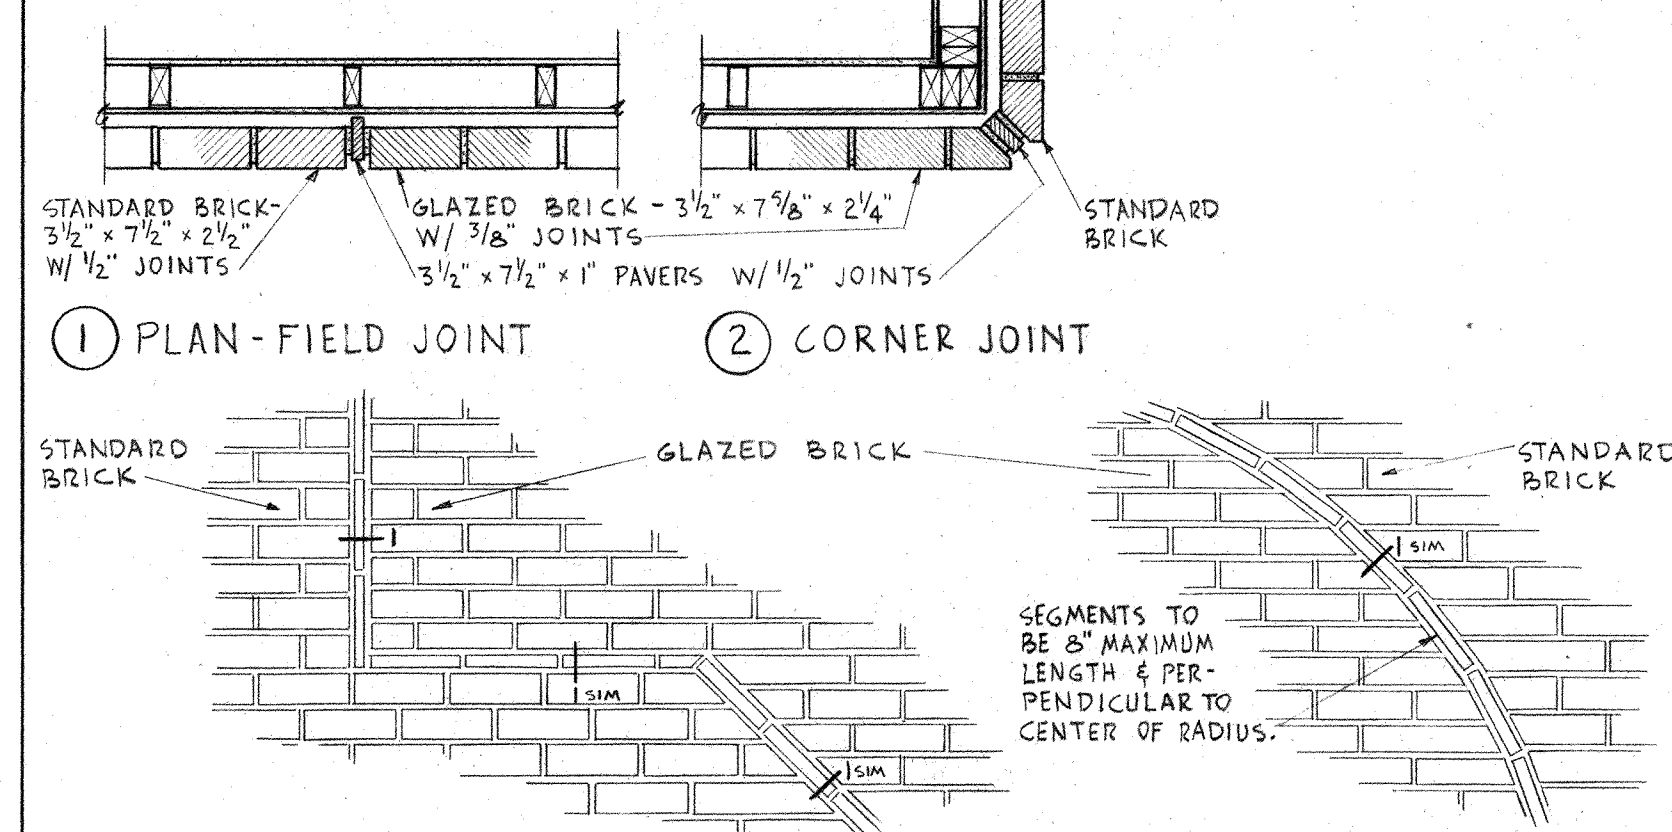 STANDARD BRICK-
3½" x 7½" x 2½"
W/ ½" JOINTS
GLAZED BRICK - 3½" x 7⅝" x 2¼"
W/ ⅜" JOINTS
3½" x 7½" x 1" PAVERS W/ ½" JOINTS
STANDARD
BRICK
1 PLAN-FIELD JOINT
2 CORNER JOINT
STANDARD
BRICK
GLAZED BRICK
STANDARD
BRICK
1
1 SIM
1 SIM
1 SIM
SEGMENTS TO
BE 8" MAXIMUM
LENGTH & PER-
PENDICULAR TO
CENTER OF RADIUS.